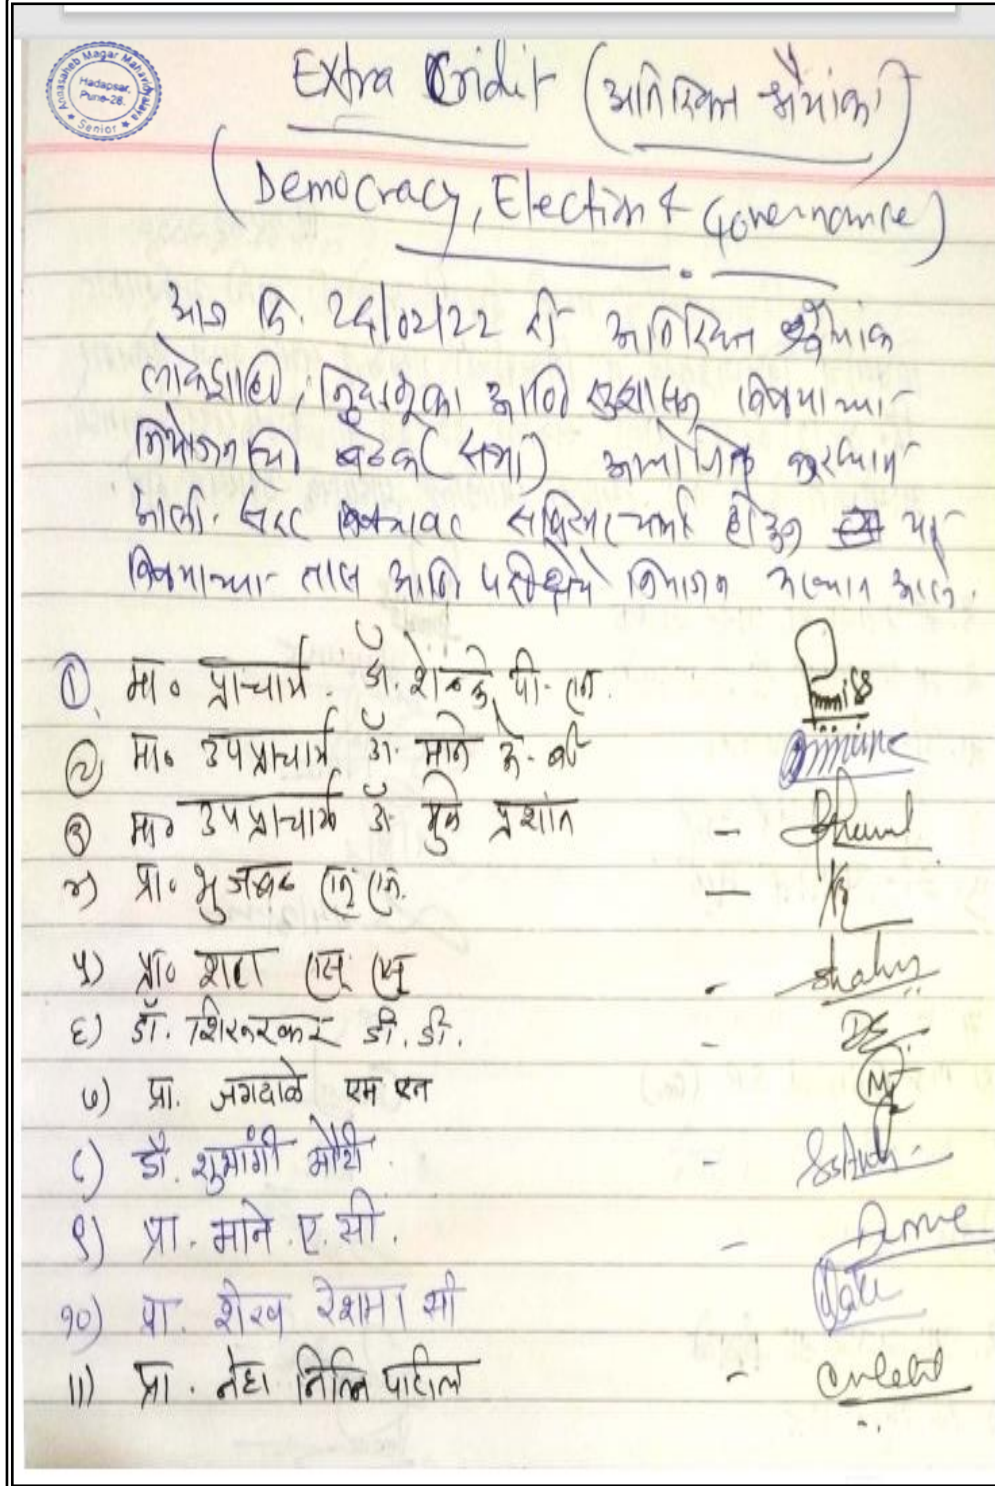 Annasaheb Magar Mahavidyalaya
Hadapsar,
Pune-28.
Senior
Extra Cridit (अतिरिक्त श्रेयांक)
(Democracy, Election & Governance)
आज दि. २६/०२/२२ रोजी अतिरिक्त श्रेयांक
लोकशाही, निवडणूका आणि सुशासन विषयाच्या
नियोजनाची बैठक (सभा) आयोजित करण्यात
आली. सदर विषयावर सविस्तर चर्चा होऊन या
विषयाच्या तास आणि परीक्षेचे नियोजन करण्यात आले.
① मा० प्राचार्य. डॉ. शेळके पी. एन.
② मा० उपप्राचार्य डॉ. माने के. बी
③ मा० उपप्राचार्य डॉ मुळे प्रशांत
४) प्रा० भुजबळ एन. एन.
५) प्रा० शहा एस. एस
६) डॉ. शिरूरकर डी. डी.
७) प्रा. जगदाळे एम एन
८) डॉ. शुभांगी औटी
९) प्रा. माने. ए. सी.
१०) प्रा. शेख रेशमा सी
11) प्रा. नेहा नितिन पाटील